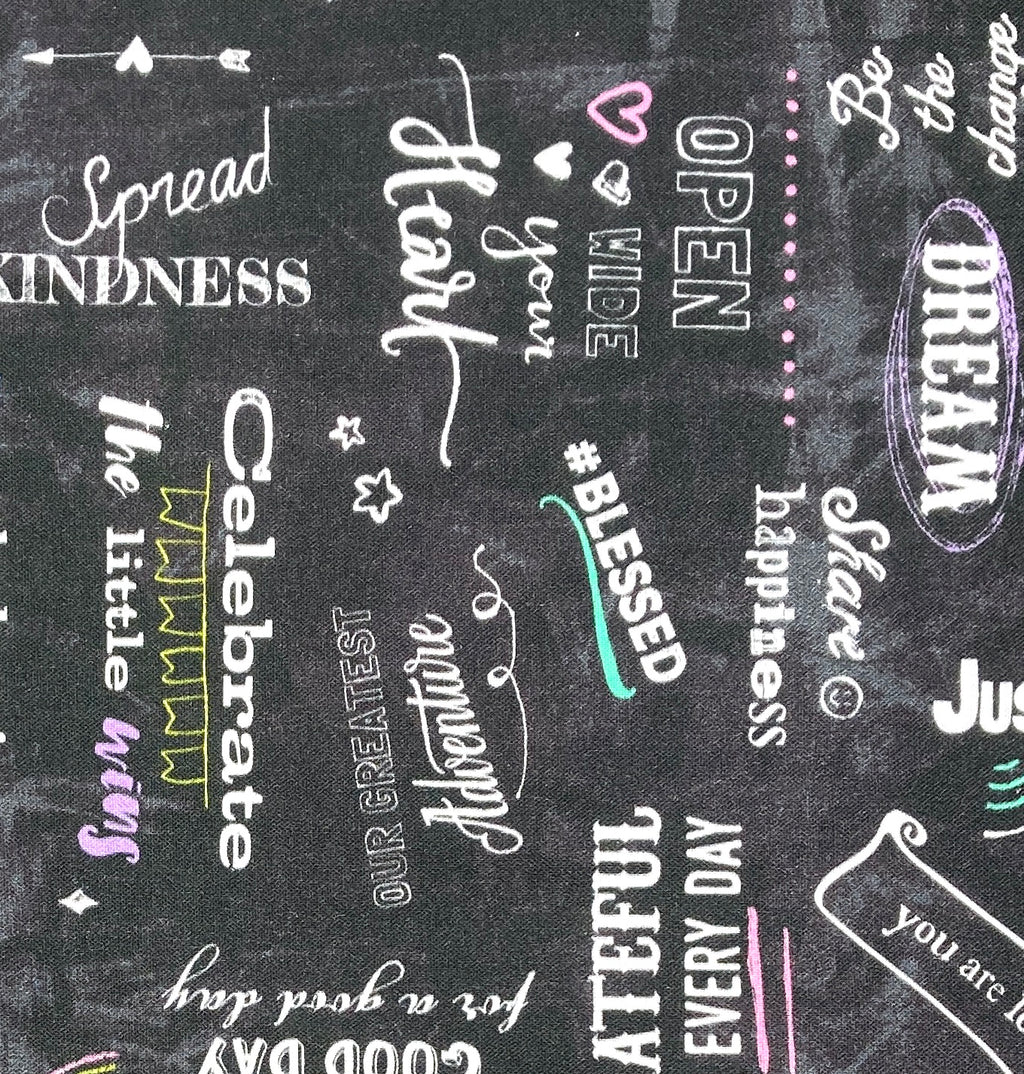 Spread
KINDNESS
OPEN
WIDE
your
Heart
Be
the
change
DREAM
Celebrate
the little wins
#BLESSED
Share
happiness
OUR GREATEST
Adventure
Jus
ATEFUL
EVERY DAY
you are
GOOD DAY
for a good day